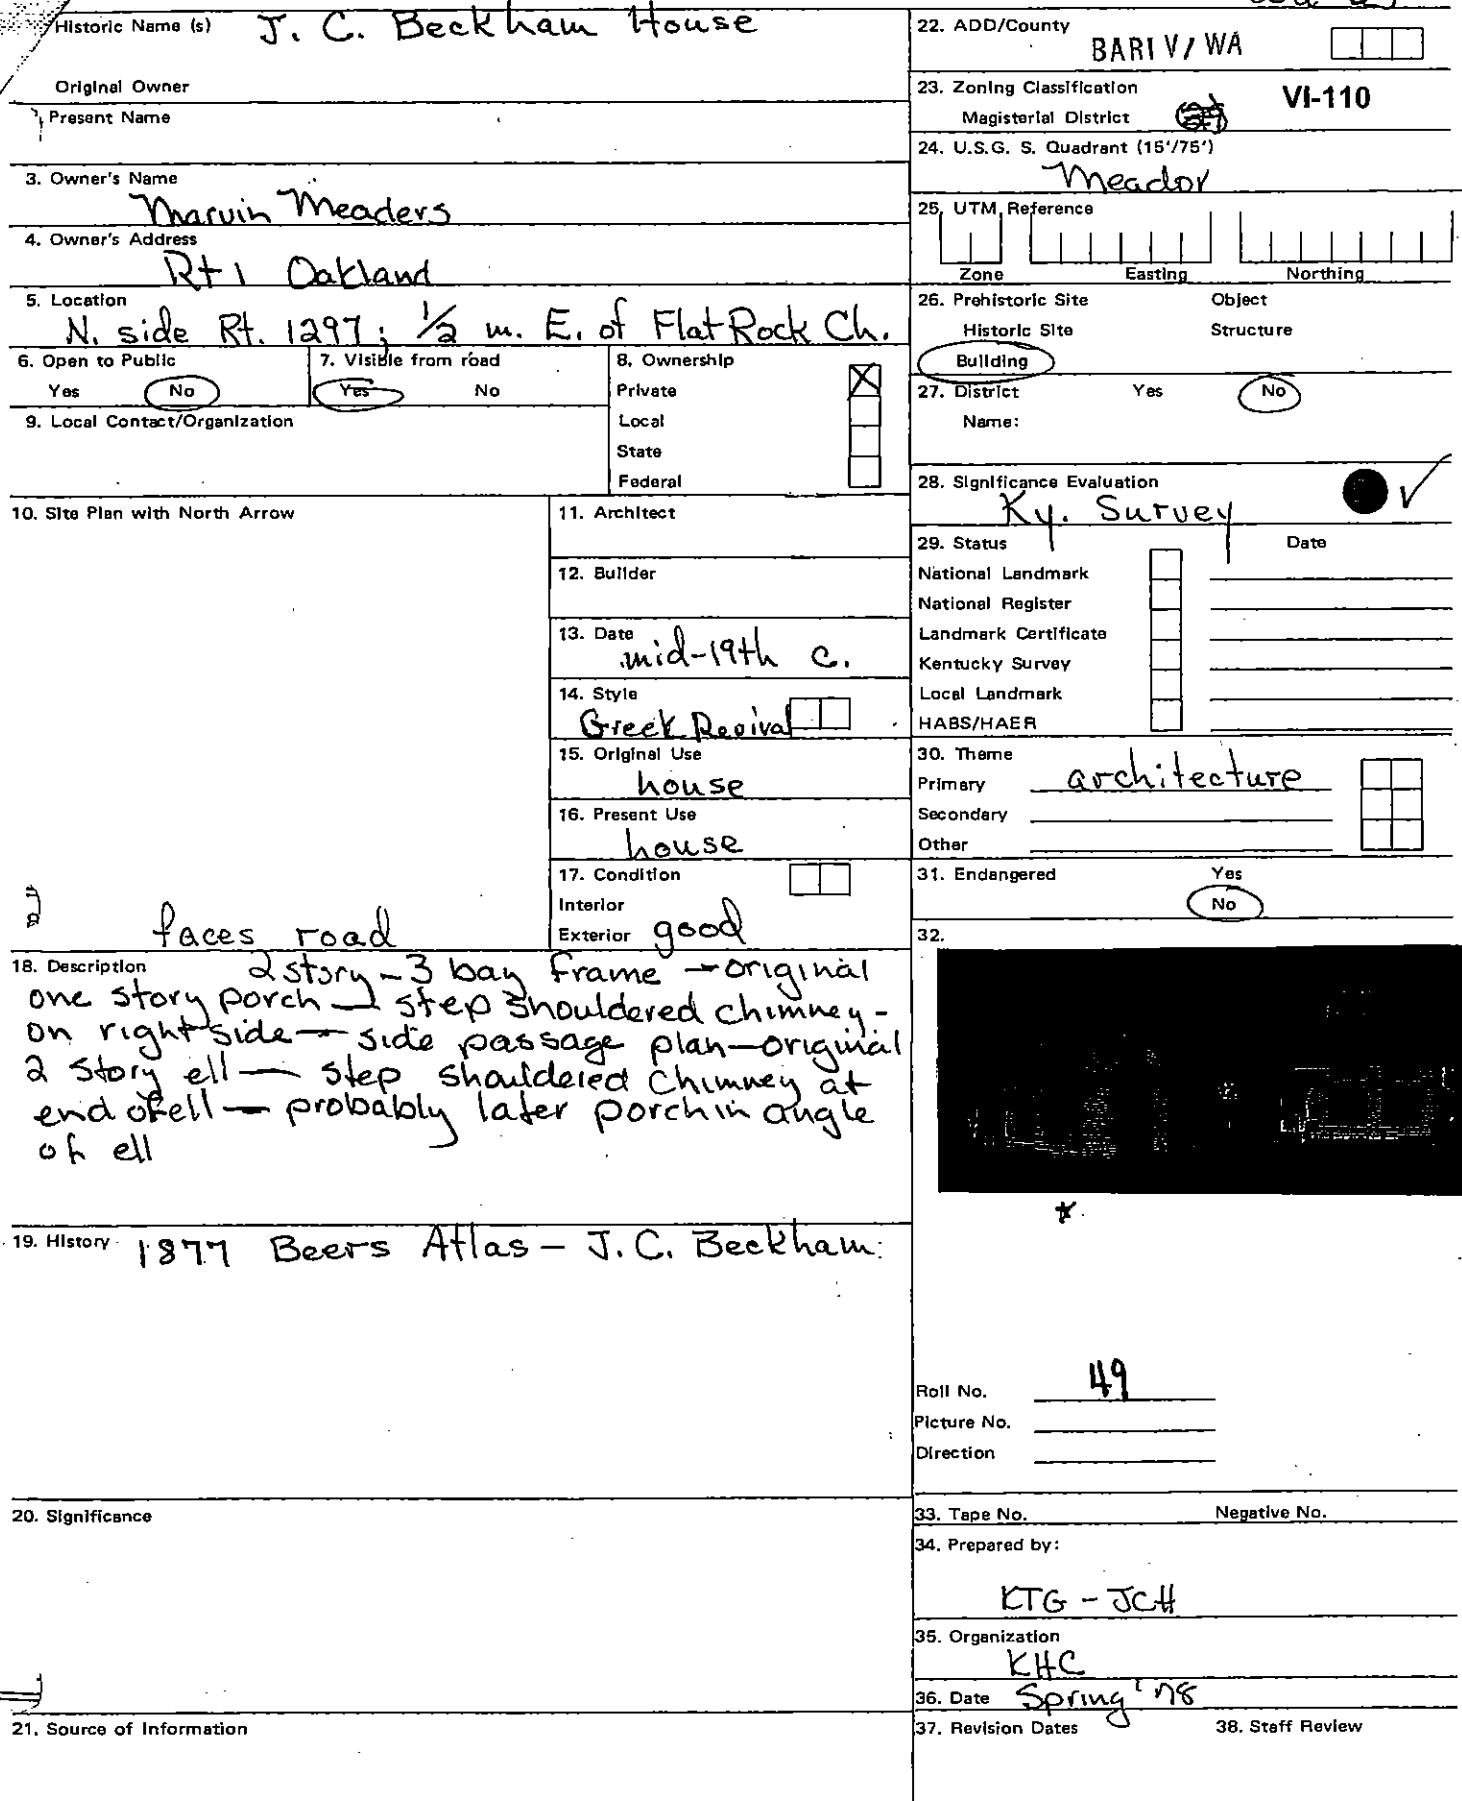 Historic Name (s) J. C. Beckham House
Original Owner
Present Name
3. Owner's Name
Marvin Meaders
4. Owner's Address
Rt 1 Oakland
5. Location
N. side Rt. 1297; 1/2 m. E. of Flat Rock Ch.
6. Open to Public
Yes No
7. Visible from road
Yes No
8. Ownership
Private
Local
State
Federal
9. Local Contact/Organization
10. Site Plan with North Arrow
faces road
11. Architect
12. Builder
13. Date
mid-19th c.
14. Style
Greek Revival
15. Original Use
house
16. Present Use
house
17. Condition
Interior
Exterior good
18. Description 2 story - 3 bay frame - original
one story porch - step shouldered chimney -
on right side - side passage plan - original
2 story ell - step shouldered chimney at
end of ell - probably later porch in angle
of ell
19. History 1877 Beers Atlas - J.C. Beckham
20. Significance
21. Source of Information
22. ADD/County
BARIV/WA
23. Zoning Classification VI-110
Magisterial District
24. U.S.G. S. Quadrant (15'/75')
Meador
25. UTM Reference
Zone Easting Northing
26. Prehistoric Site Object
Historic Site Structure
Building
27. District Yes No
Name:
28. Significance Evaluation
Ky. Survey
29. Status Date
National Landmark
National Register
Landmark Certificate
Kentucky Survey
Local Landmark
HABS/HAER
30. Theme
Primary architecture
Secondary
Other
31. Endangered Yes
No
32.
Roll No. 49
Picture No.
Direction
33. Tape No. Negative No.
34. Prepared by:
KTG - JCH
35. Organization
KHC
36. Date Spring '78
37. Revision Dates 38. Staff Review